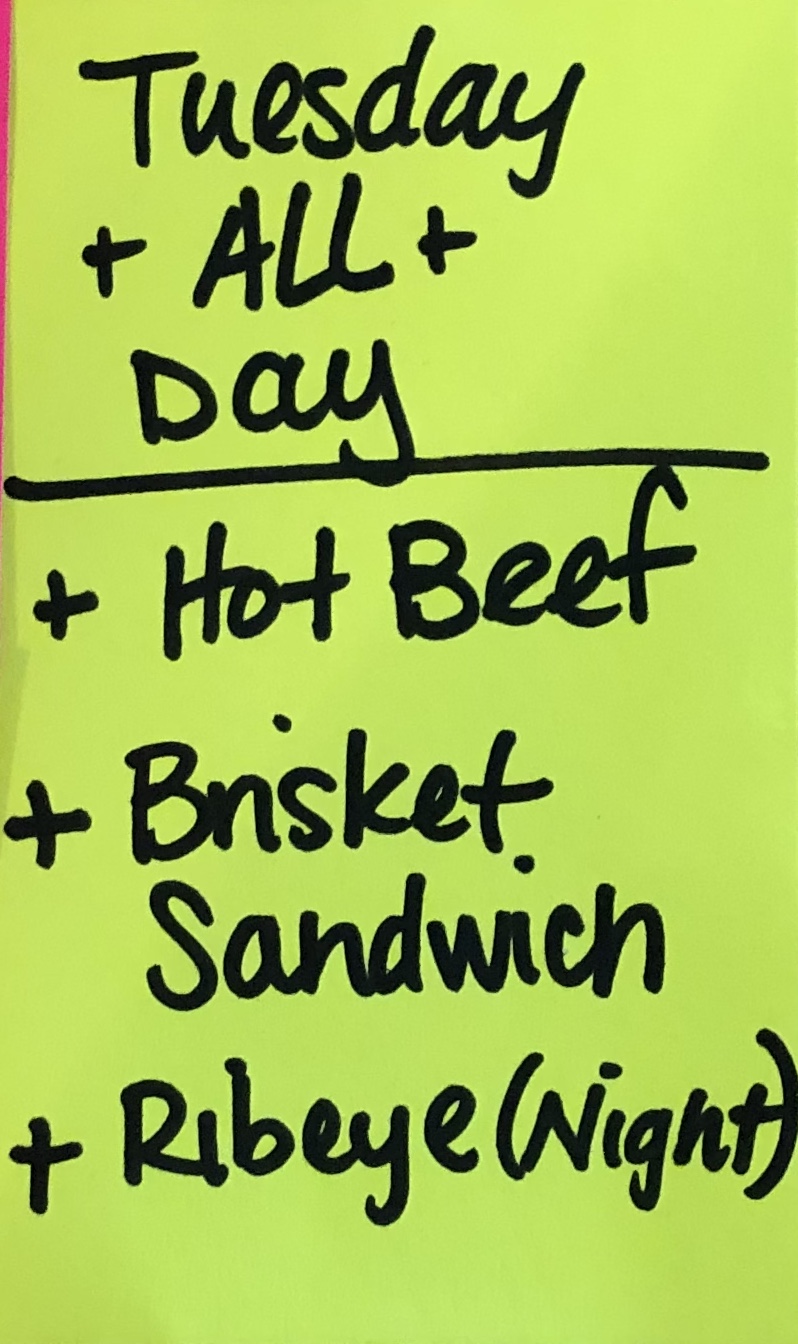 Tuesday
+ ALL +
Day
+ Hot Beef
+ Brisket
Sandwich
+ Ribeye (Night)